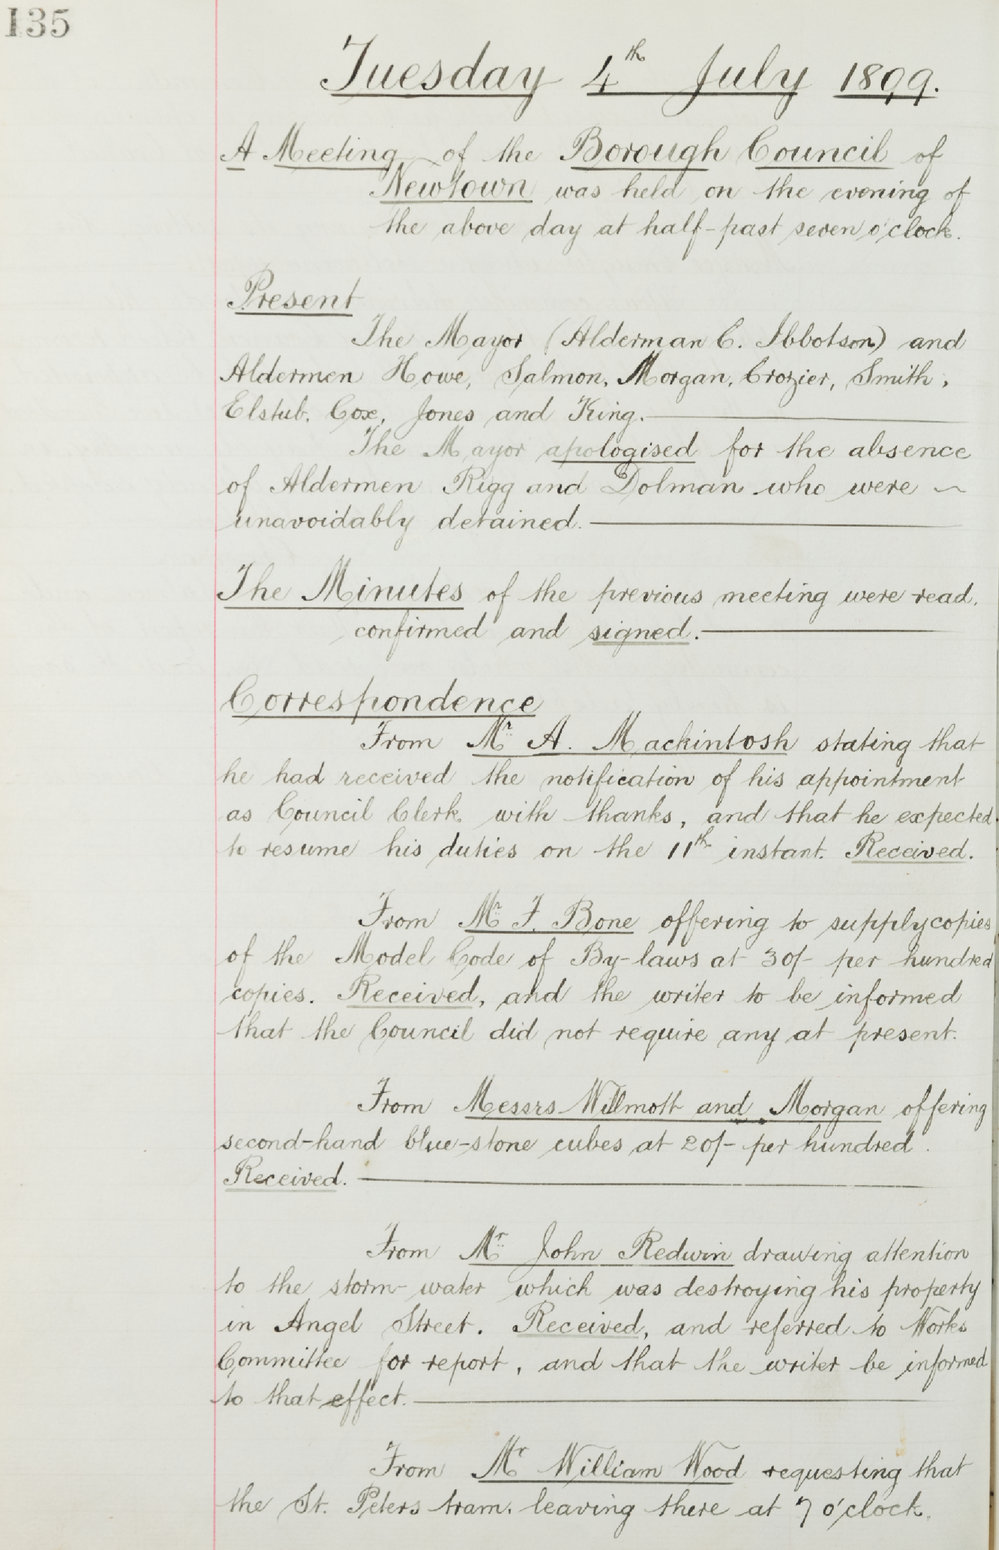 135
Tuesday 4th July 1899.
A Meeting of the Borough Council of
Newtown was held on the evening of
the above day at half-past seven o'clock.
Present
The Mayor (Alderman C. Ibbotson) and
Aldermen Howe, Salmon, Morgan, Crozier, Smith,
Elstub, Cox, Jones and King.
The Mayor apologised for the absence
of Aldermen Rigg and Dolman who were
unavoidably detained.
The Minutes of the previous meeting were read,
confirmed and signed.
Correspondence
From Mr A. Mackintosh stating that
he had received the notification of his appointment
as Council Clerk, with thanks, and that he expected
to resume his duties on the 11th instant. Received.
From Mr F. Bone offering to supply copies
of the Model Code of By-laws at 30/- per hundred
copies. Received, and the writer to be informed
that the Council did not require any at present.
From Messrs Willmott and Morgan offering
second-hand blue-stone cubes at 20/- per hundred.
Received.
From Mr John Redwin drawing attention
to the storm-water which was destroying his property
in Angel Street. Received, and referred to Works
Committee for report, and that the writer be informed
to that effect.
From Mr William Wood requesting that
the St. Peters tram, leaving there at 7 o'clock,